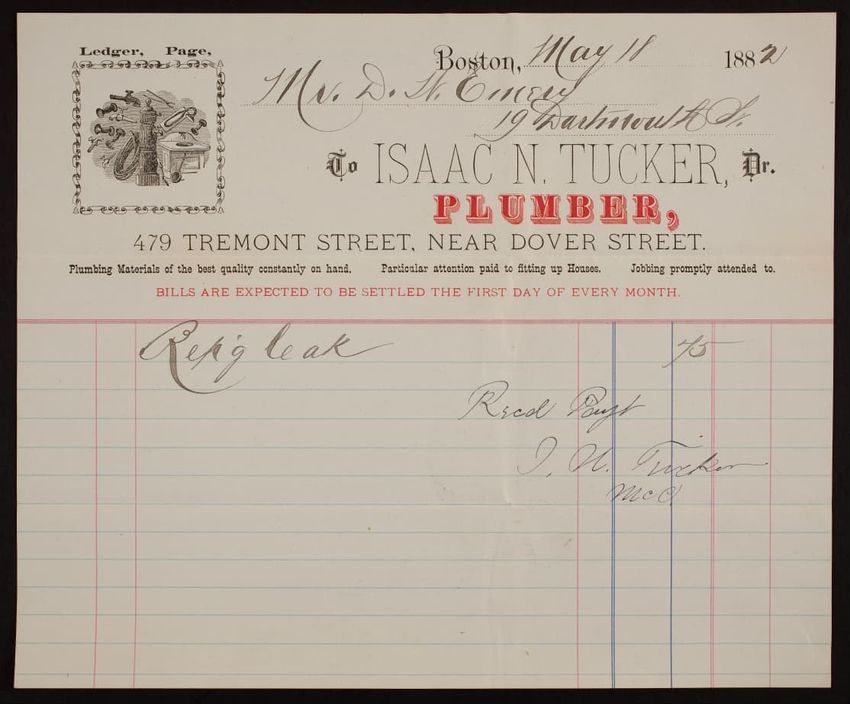 Ledger, Page,
Boston, May 18 1882
Mr. D. H. Emery
19 Dartmouth St.
To ISAAC N. TUCKER, Dr.
PLUMBER,
479 TREMONT STREET, NEAR DOVER STREET.
Plumbing Materials of the best quality constantly on hand. Particular attention paid to fitting up Houses. Jobbing promptly attended to.
BILLS ARE EXPECTED TO BE SETTLED THE FIRST DAY OF EVERY MONTH.
Rep'g leak 75
Recd Payt
I. N. Tucker
McC